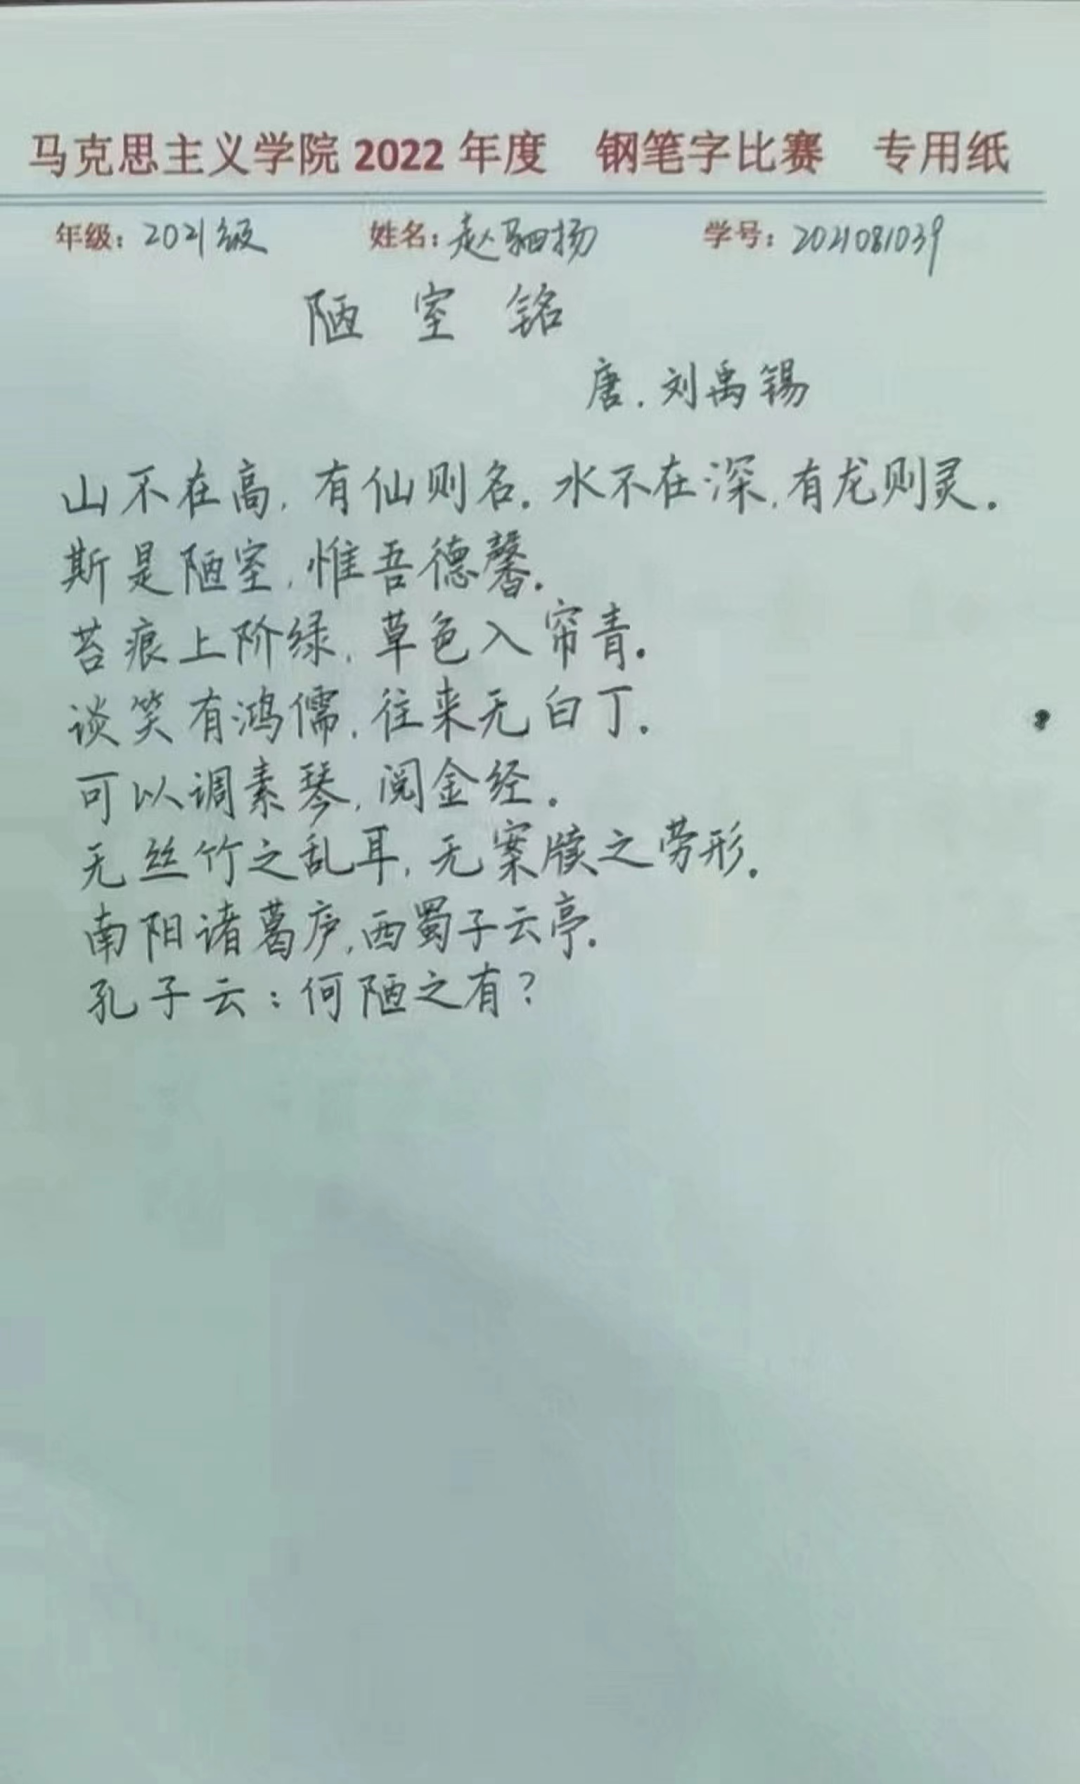 马克思主义学院 2022 年度 钢笔字比赛 专用纸
年级：2021级 姓名：赵驷扬 学号：2021081039
陋 室 铭
唐．刘禹锡
山不在高，有仙则名．水不在深，有龙则灵．
斯是陋室，惟吾德馨．
苔痕上阶绿，草色入帘青．
谈笑有鸿儒，往来无白丁．
可以调素琴，阅金经．
无丝竹之乱耳，无案牍之劳形．
南阳诸葛庐，西蜀子云亭．
孔子云：何陋之有？